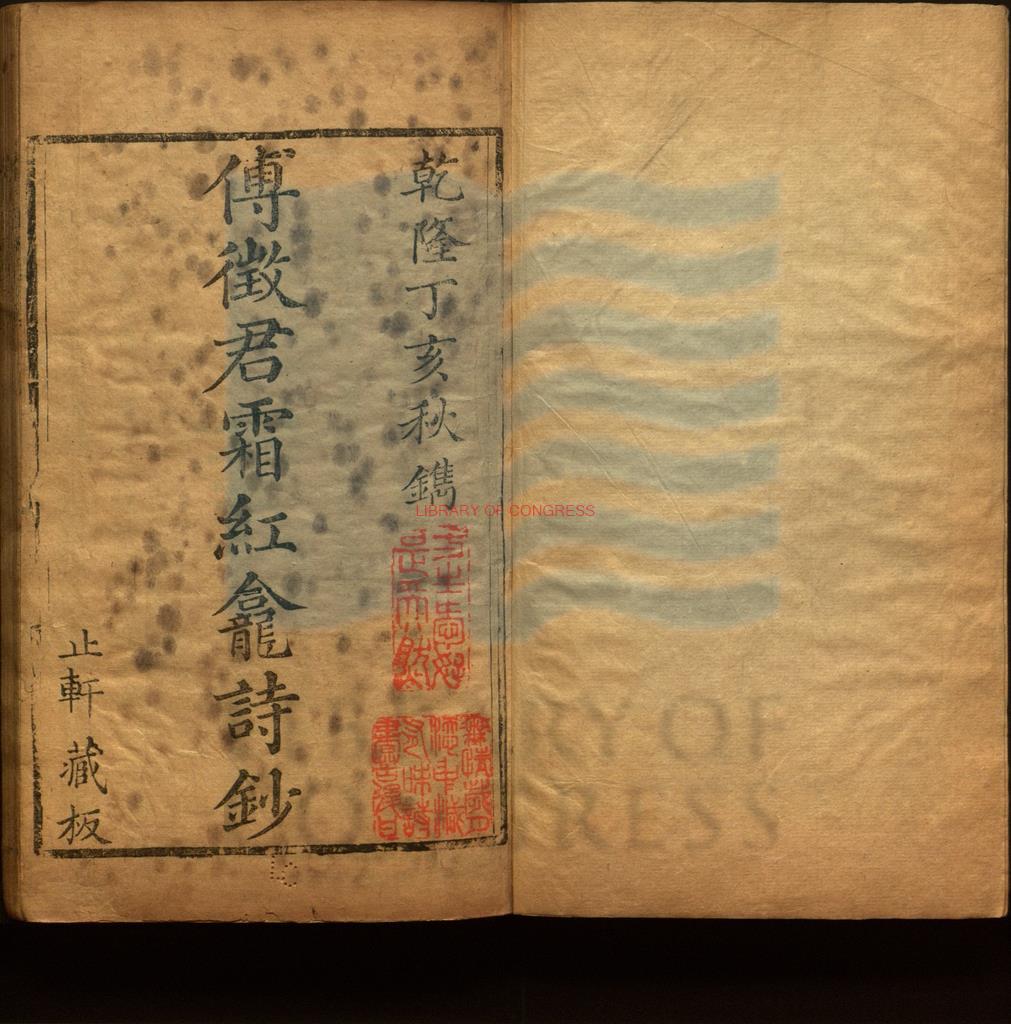 乾隆丁亥秋鐫
傅徵君霜紅龕詩鈔
止軒藏板
LIBRARY OF CONGRESS